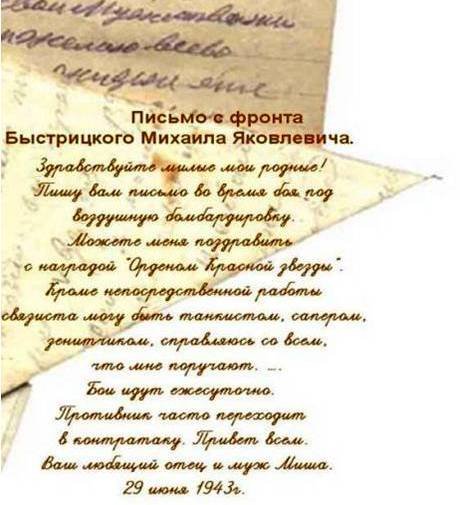 пожелаю всего
Письмо с фронта
Быстрицкого Михаила Яковлевича.
Здравствуйте милые мои родные!
Пишу вам письмо во время боя под
воздушную бомбардировку.
Можете меня поздравить
с наградой "Орденом Красной звезды".
Кроме непосредственной работы
связиста могу быть танкистом, сапером,
зенитчиком, справляюсь со всем,
что мне поручают. ...
Бои идут ежесуточно.
Противник часто переходит
в контратаку. Привет всем.
Ваш любящий отец и муж Миша.
29 июня 1943г.